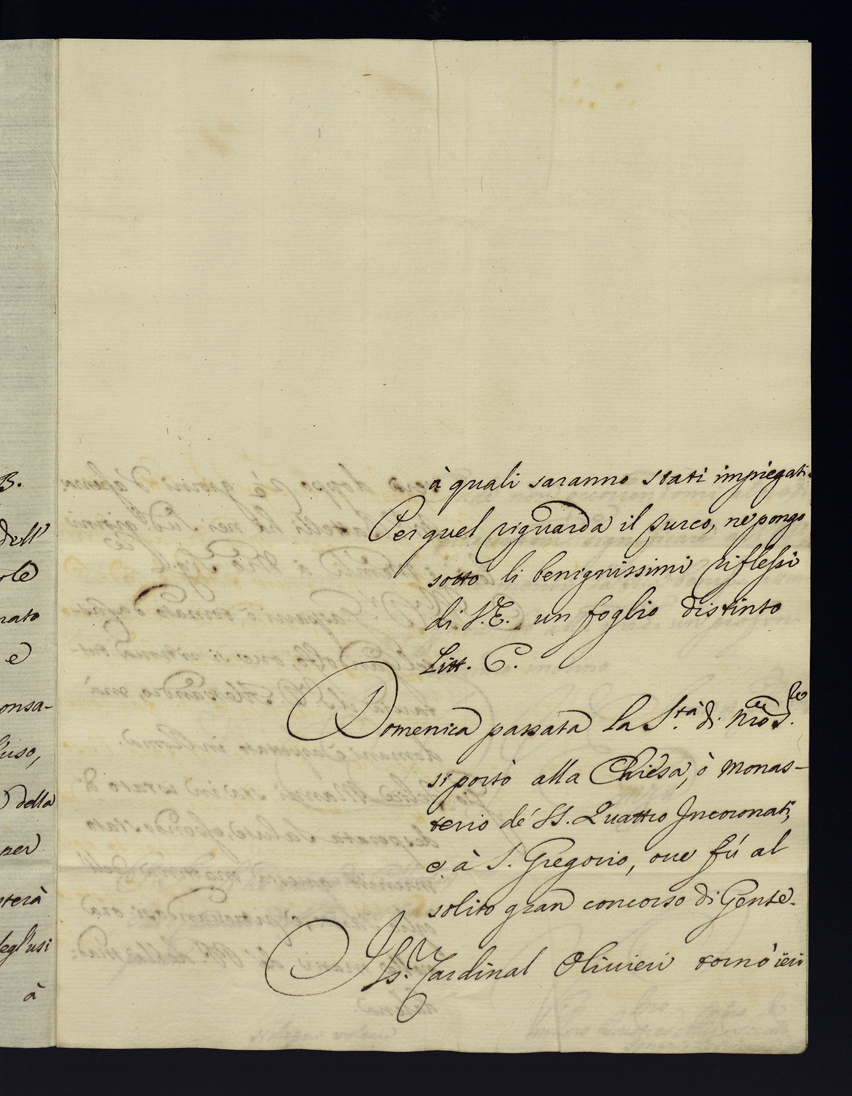 B.
dell'
ole
nato
e
onsa-
luso,
della
per
terà
degl'usi
à
à quali saranno stati impiegati.
Per quel riguarda il Surco, ne pongo
sotto li benignissimi riflessi
di V.E. un foglio distinto
Litt. C.
Domenica passata la S.tà di Nr̃o S.re
si portò alla Chiesa, ò Monas-
terio de' SS. Quattro Incoronati,
e à S. Gregorio, ove fú al
solito gran concorso di Gente.
Il S.r Cardinal Olivieri tornò ieri